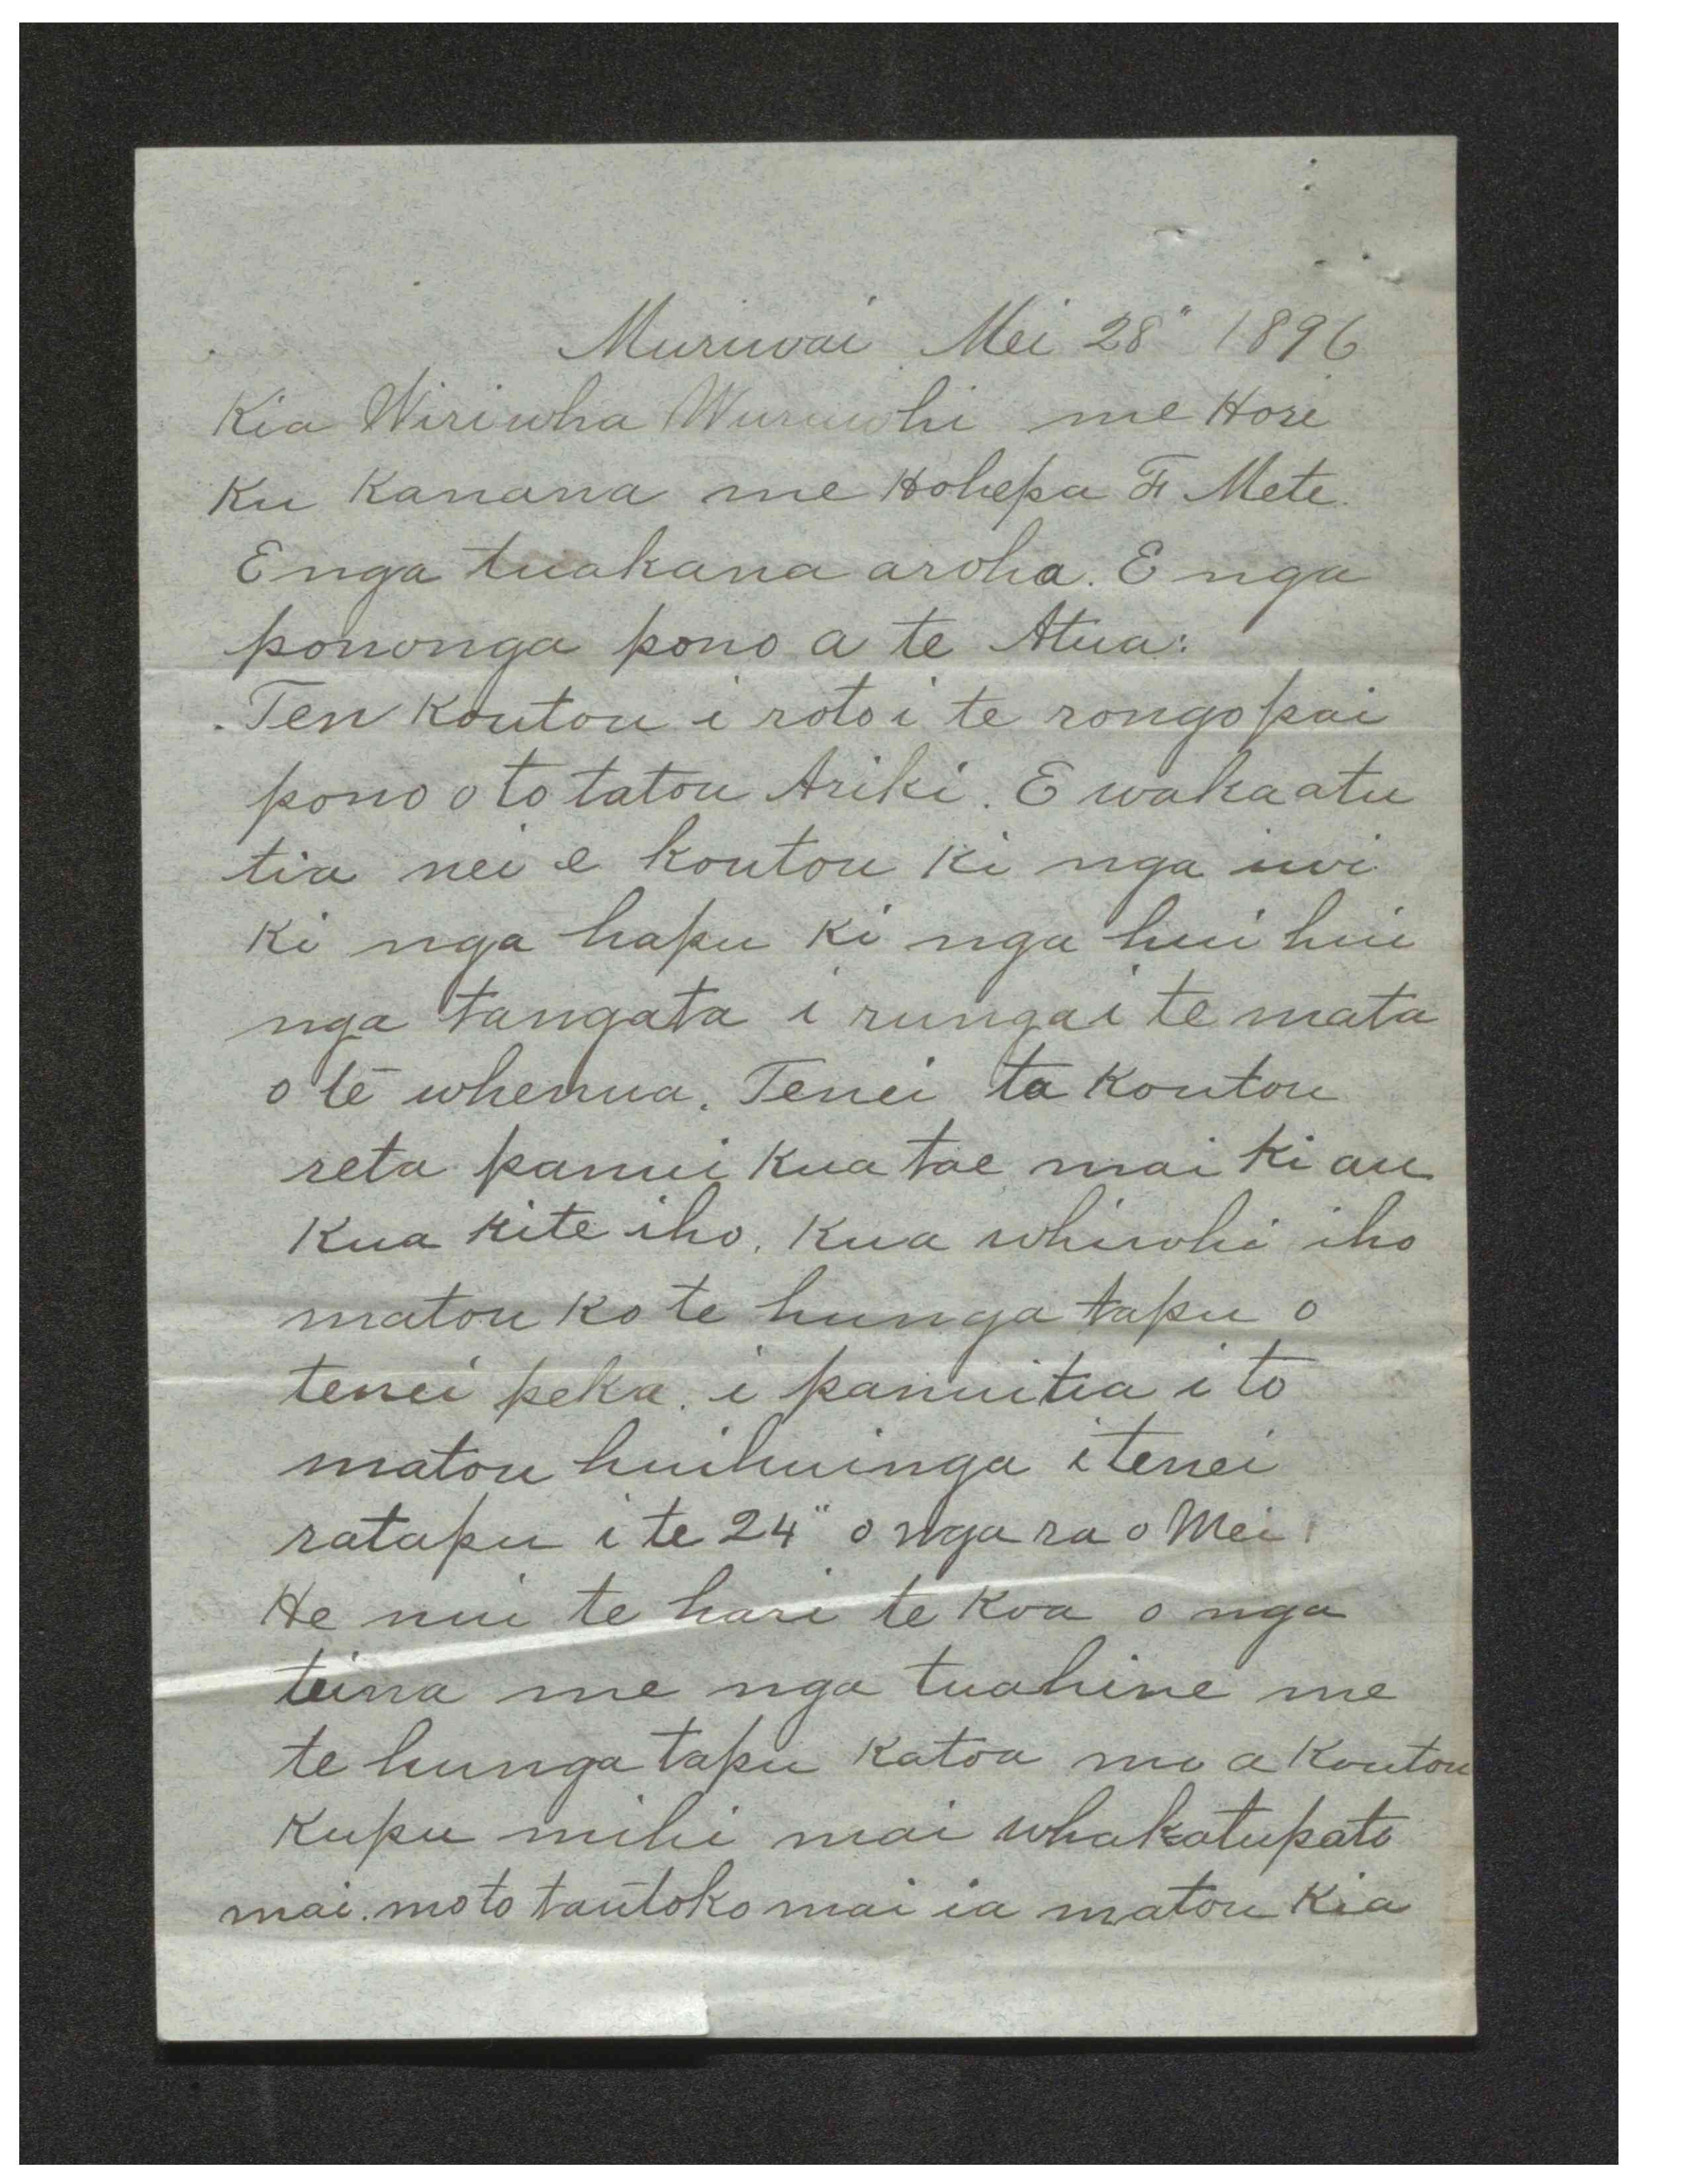 Muriwai Mei 28" 1896
Kia Wiriwha Wuruwhi me Hori
Ku Kanana me Hohepa F. Mete.
E nga tuakana aroha. E nga
pononga pono a te Atua:
Ten Koutou i roto i te rongo pai
pono o to tatou Ariki. E wakaatu
tia nei e koutou Ki nga iwi
Ki nga hapu Ki nga hui hui
nga tangata i runga i te mata
o te whenua. Tenei ta Koutou
reta panui Kua tae mai ki au
Kua kite iho. Kua whiwhi iho
matou Ko te hunga tapu o
tenei peka. i panuitia i to
matou huihuinga i tenei
ratapu i te 24" o nga ra o Mei.
He nui te hari te Koa o nga
teina me nga tuahine me
te hunga tapu Katoa mo a Koutou
Kupu mihi mai whakatupato
mai. mo to tautoko mai ia matou Kia